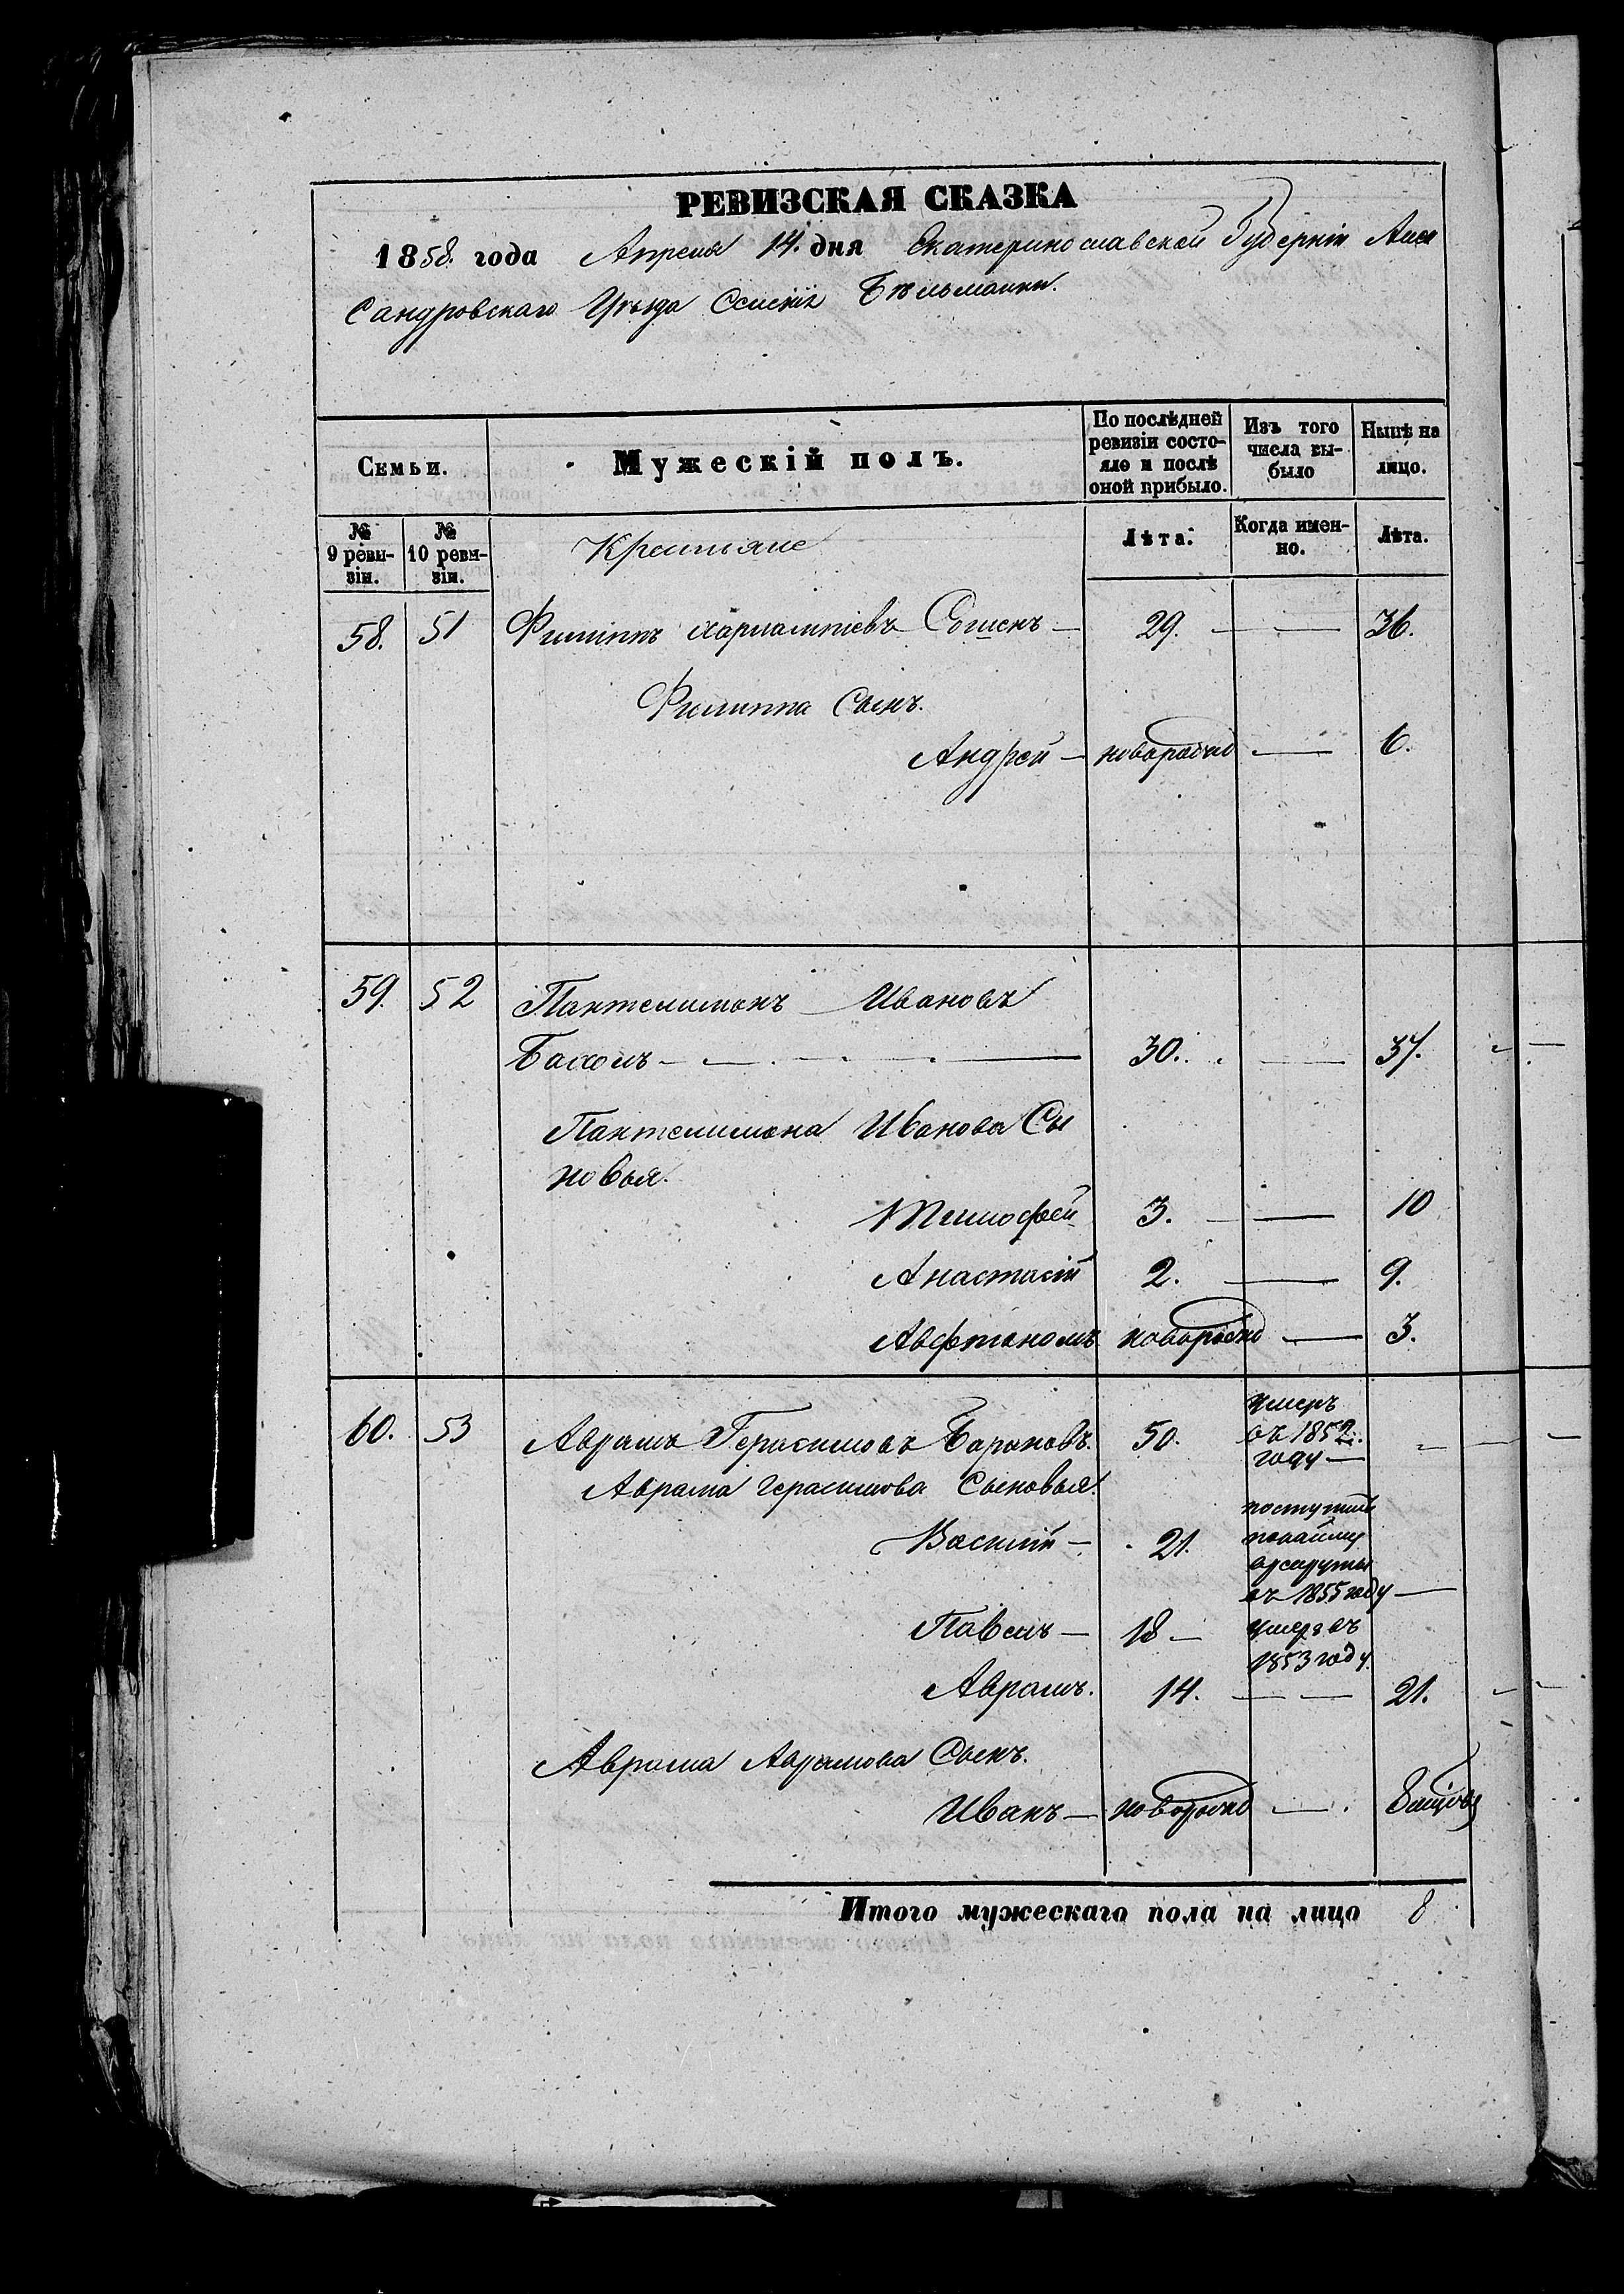 РЕВИЗСКАЯ СКАЗКА
1858. года Апреля 14. дня Екатеринославской Губерніи Алек
сандровскаго Уѣзда Бѣльманки.
Семьи.
Мужескій полъ.
По послѣдней ревизіи состо-
яло и послѣ
оной прибыло.
Изъ того
числа вы-
было
Нынѣ на
лицо.
№
9 реви-
зіи.
№
10 реви-
зіи.
Крестьяне
Лѣта.
Когда имен-
но.
Лѣта.
58. 51 Филиппъ Харлампіевъ — 29. — — 36.
Филиппа Сынъ.
Андрей — новорожд — 6.
59. 52 Пантелимонъ Ивановъ
30. — 37.
Пантелимона Иванова Сы
новья.
Тимофей 3. — — 10
Анастасій 2. — 9.
Авфтаномъ новорожд — 3.
60. 53 Аврамъ Герасимовъ Барановъ. 50. умеръ
въ 1852.
году —
Аврама Герасимова Сыновья.
Василій — 21. поступилъ
понайму
врекруты
въ 1855 году —
Павелъ — 18 — умеръ въ
1853 году.
Аврамъ. 14. — — 21.
Аврама Аврамова Сынъ.
Иванъ — новорожд — 8 мѣсяц
Итого мужескаго пола на лицо 8